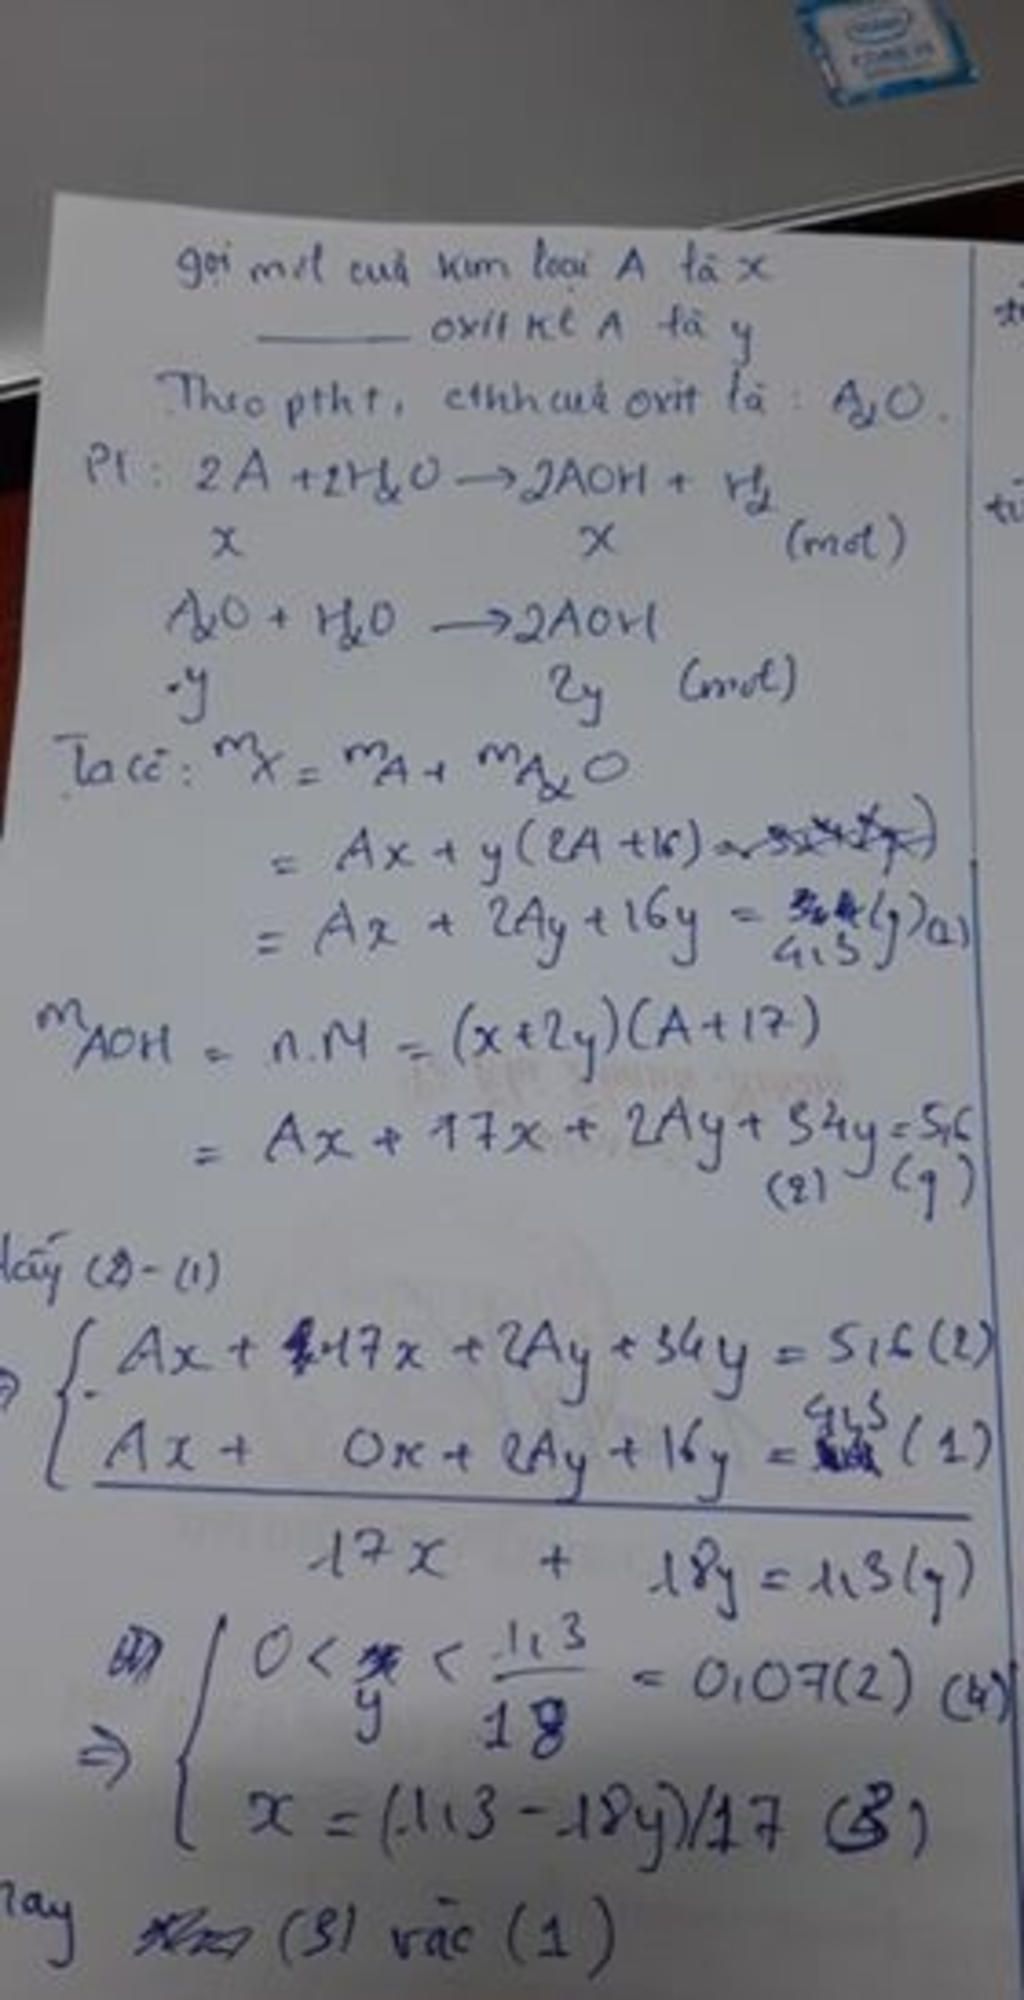 intel
CORE i5
gọi mol của kim loại A là x
______ oxit KL A là y
Theo ptht, cthh của oxit là : A₂O.
Pt : 2A + 2H₂O → 2AOH + H₂
x x (mol)
A₂O + H₂O → 2AOH
y 2y (mol)
Ta có : mX = mA + mA₂O
= Ax + y(2A + 16)
= Ax + 2Ay + 16y = 4,3 (g) (1)
mAOH = n.M = (x+2y)(A+17)
= Ax + 17x + 2Ay + 34y = 5,6
(2) (g)
lấy (2) - (1)
Ax + 17x + 2Ay + 34y = 5,6 (2)
- Ax + 0x + 2Ay + 16y = 4,3 (1)
17x + 18y = 1,3 (g)
0 < y < 1,3/18 = 0,07(2) (4)
⇒ x = (1,3 - 18y)/17 (3)
(3) vào (1)